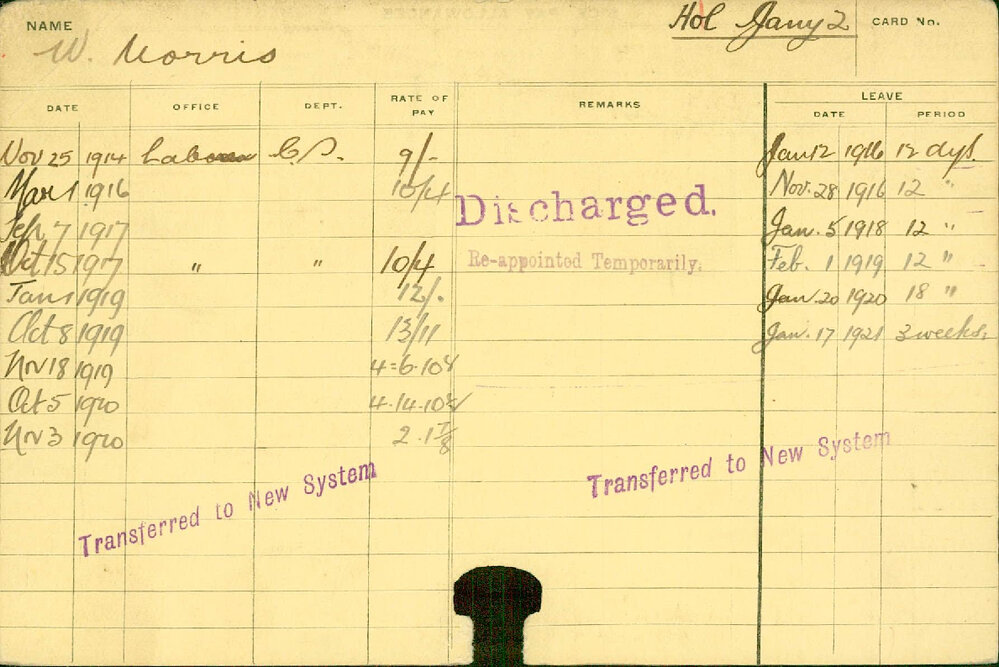 NAME W. Morris Hol Jany 2 CARD No.
DATE OFFICE DEPT. RATE OF PAY REMARKS LEAVE DATE PERIOD
Nov 25 1914 C.P. 9/- Jan 12 1916 12 dys.
Mar 1 1916 10/4 Nov. 28 1916 12 "
Discharged.
Sep 7 1917 Jan. 5 1918 12 "
Oct 15 1917 " " 10/4 Re-appointed Temporarily. Feb. 1 1919 12 "
Jan 1 1919 12/. Jan. 20 1920 18 "
Oct 8 1919 13/11 Jan. 17 1921 3 weeks.
Nov 18 1919 4=6-10
Oct 5 1920 4-14-10
Nov 3 1920 2.1 7/8
Transferred to New System Transferred to New System